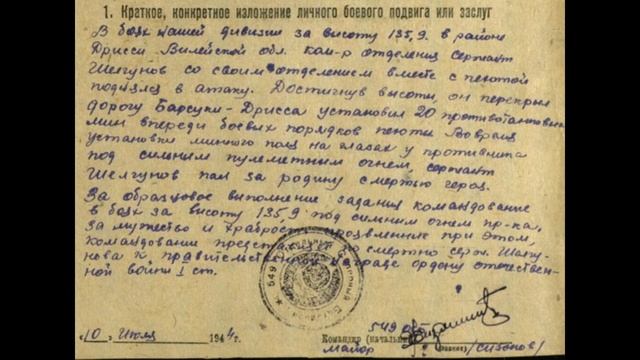 1. Краткое, конкретное изложение личного боевого подвига или заслуг
В боях нашей дивизии за высоту 135,9 в районе
Дрисси Вилейской обл. ком-р отделения сержант
Шелгунов со своим отделением вместе с пехотой
поднялся в атаку. Достигнув высоты, он перекрыл
дорогу Барсуки-Дрисса установил 20 противотанковых
мин впереди боевых порядков пехоты. Во время
установки минного поля на глазах у противника
под сильным пулеметным огнем, сержант
Шелгунов пал за родину смертью героя.
За образцовое выполнение задания командования
в боях за высоту 135,9 под сильным огнем пр-ка,
за мужество и храбрость проявленные при этом,
командование представляет посмертно серж. Шелгу-
нова к правительственной награде ордену отечествен-
ной войны I ст.
549
"10" Июля 1944 г.
549
Командир (начальник)
Майор /Ситонов/